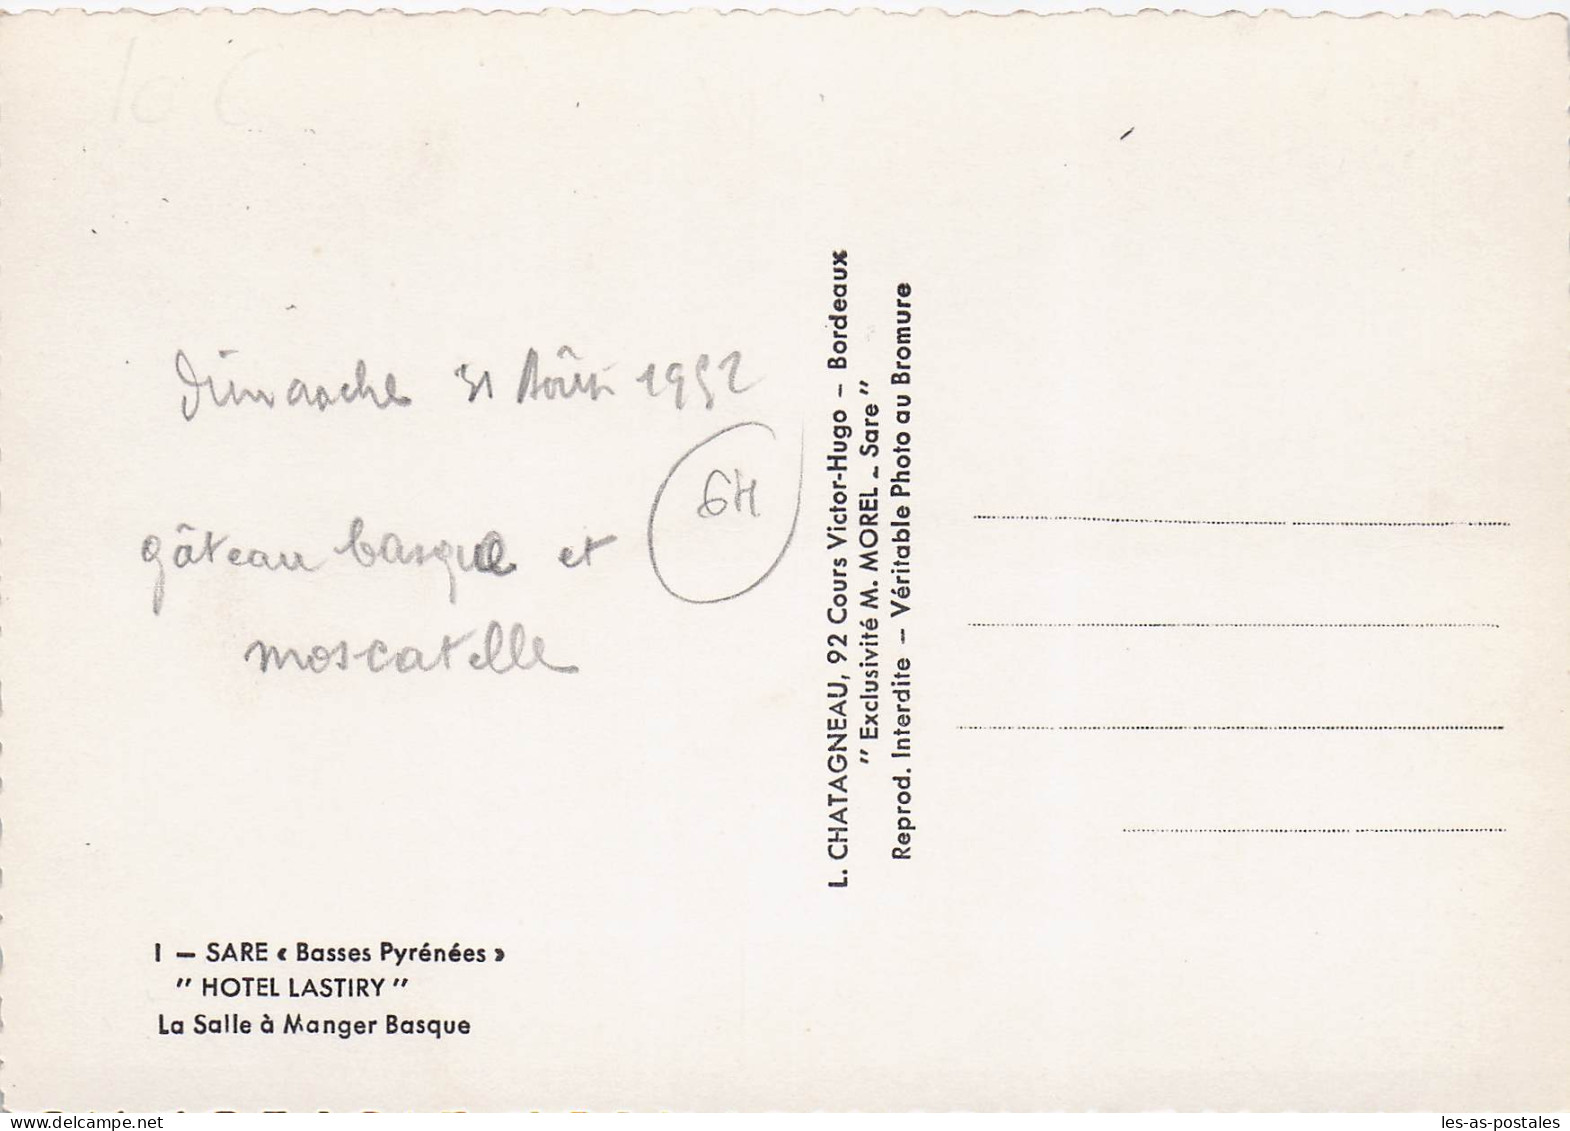 10 C
Dimanche 31 Août 1952
64
gâteau basque et
moscatelle
L. CHATAGNEAU, 92 Cours Victor-Hugo – Bordeaux
" Exclusivité M. MOREL – Sare "
Reprod. Interdite – Véritable Photo au Bromure
I – SARE « Basses Pyrénées »
" HOTEL LASTIRY "
La Salle à Manger Basque
www.delcampe.net
les-as-postales